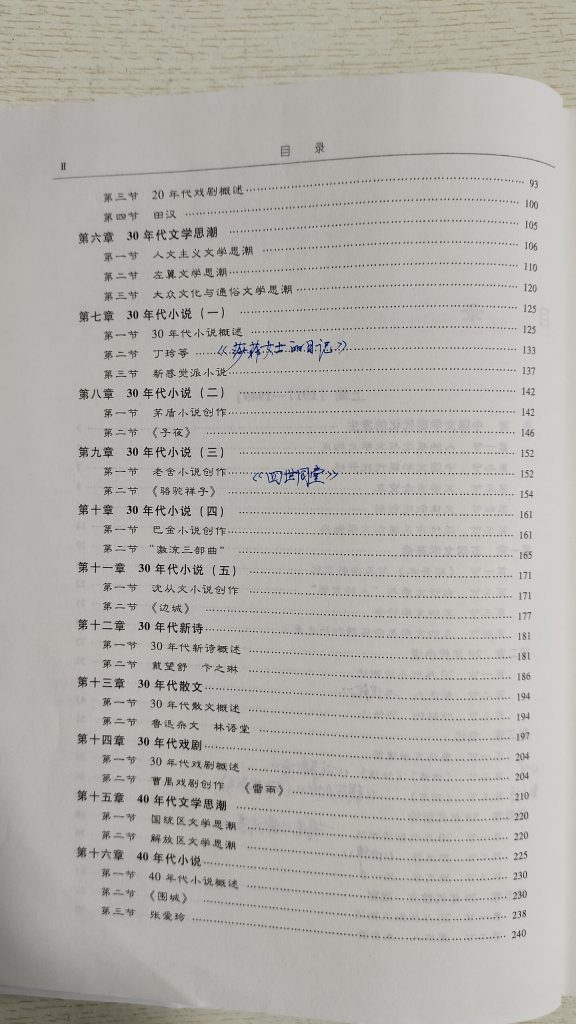 II
目 录
第三节 20年代戏剧概述 93
第四节 田汉 100
第六章 30年代文学思潮 105
第一节 人文主义文学思潮 106
第二节 左翼文学思潮 110
第三节 大众文化与通俗文学思潮 120
第七章 30年代小说（一） 125
第一节 30年代小说概述 125
第二节 丁玲等 《莎菲女士的日记》 133
第三节 新感觉派小说 137
第八章 30年代小说（二） 142
第一节 茅盾小说创作 142
第二节 《子夜》 146
第九章 30年代小说（三） 152
第一节 老舍小说创作 《四世同堂》 152
第二节 《骆驼祥子》 154
第十章 30年代小说（四） 161
第一节 巴金小说创作 161
第二节 “激流三部曲” 165
第十一章 30年代小说（五） 171
第一节 沈从文小说创作 171
第二节 《边城》 177
第十二章 30年代新诗 181
第一节 30年代新诗概述 181
第二节 戴望舒 卞之琳 186
第十三章 30年代散文 194
第一节 30年代散文概述 194
第二节 鲁迅杂文 林语堂 197
第十四章 30年代戏剧 204
第一节 30年代戏剧概述 204
第二节 曹禺戏剧创作 《雷雨》 210
第十五章 40年代文学思潮 220
第一节 国统区文学思潮 220
第二节 解放区文学思潮 225
第十六章 40年代小说 230
第一节 40年代小说概述 230
第二节 《围城》 238
第三节 张爱玲 240